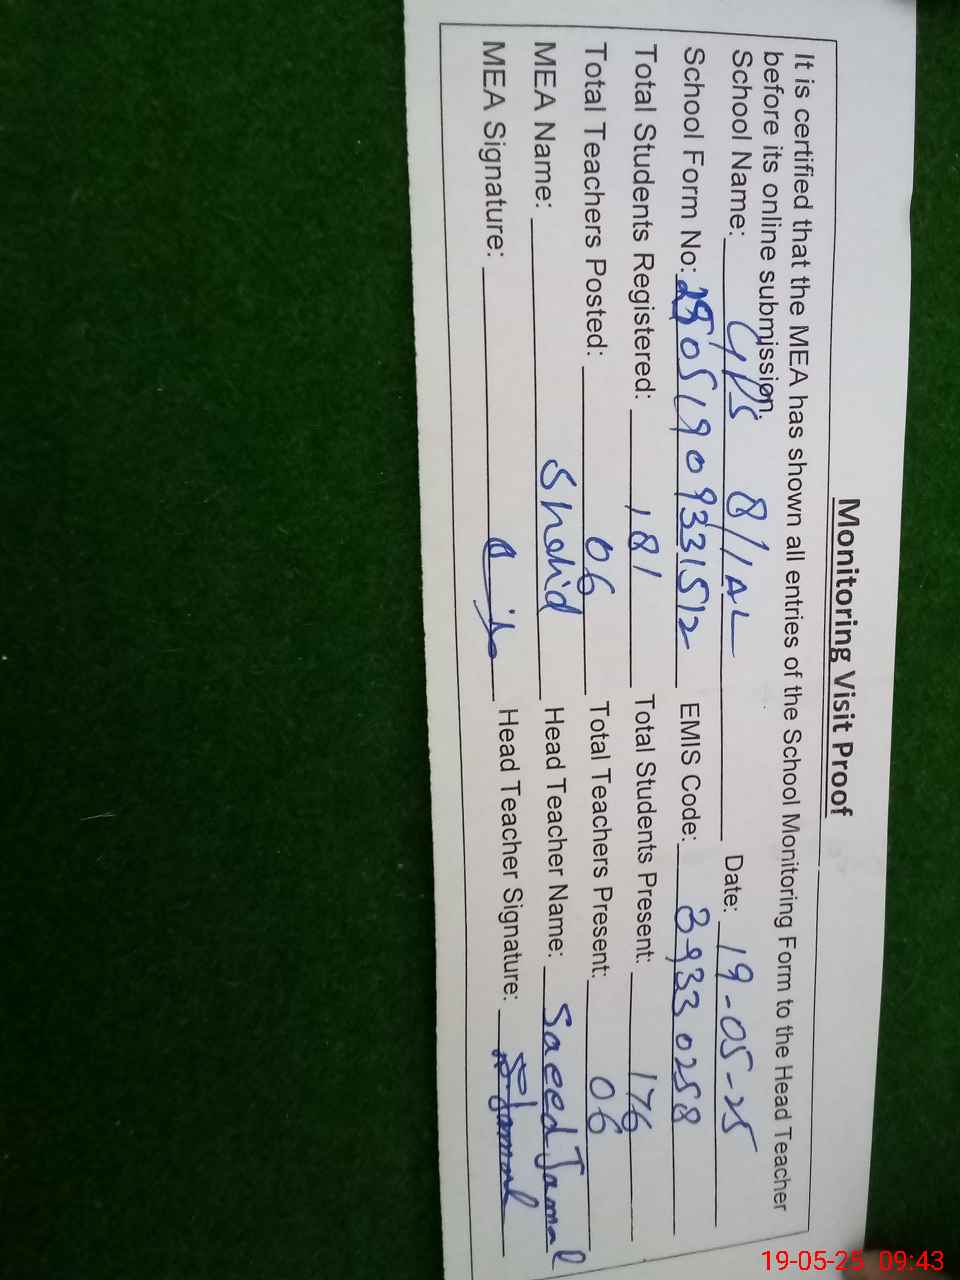 Monitoring Visit Proof
It is certified that the MEA has shown all entries of the School Monitoring Form to the Head Teacher
before its online submission.
School Name: GPS 8/1AL Date: 19-05-25
School Form No: 25051909331512 EMIS Code: 39330258
Total Students Registered: 181 Total Students Present: 176
Total Teachers Posted: 06 Total Teachers Present: 06
MEA Name: Shahid Head Teacher Name: Saeed Jamal
MEA Signature: Head Teacher Signature: SJamal
19-05-25 09:43